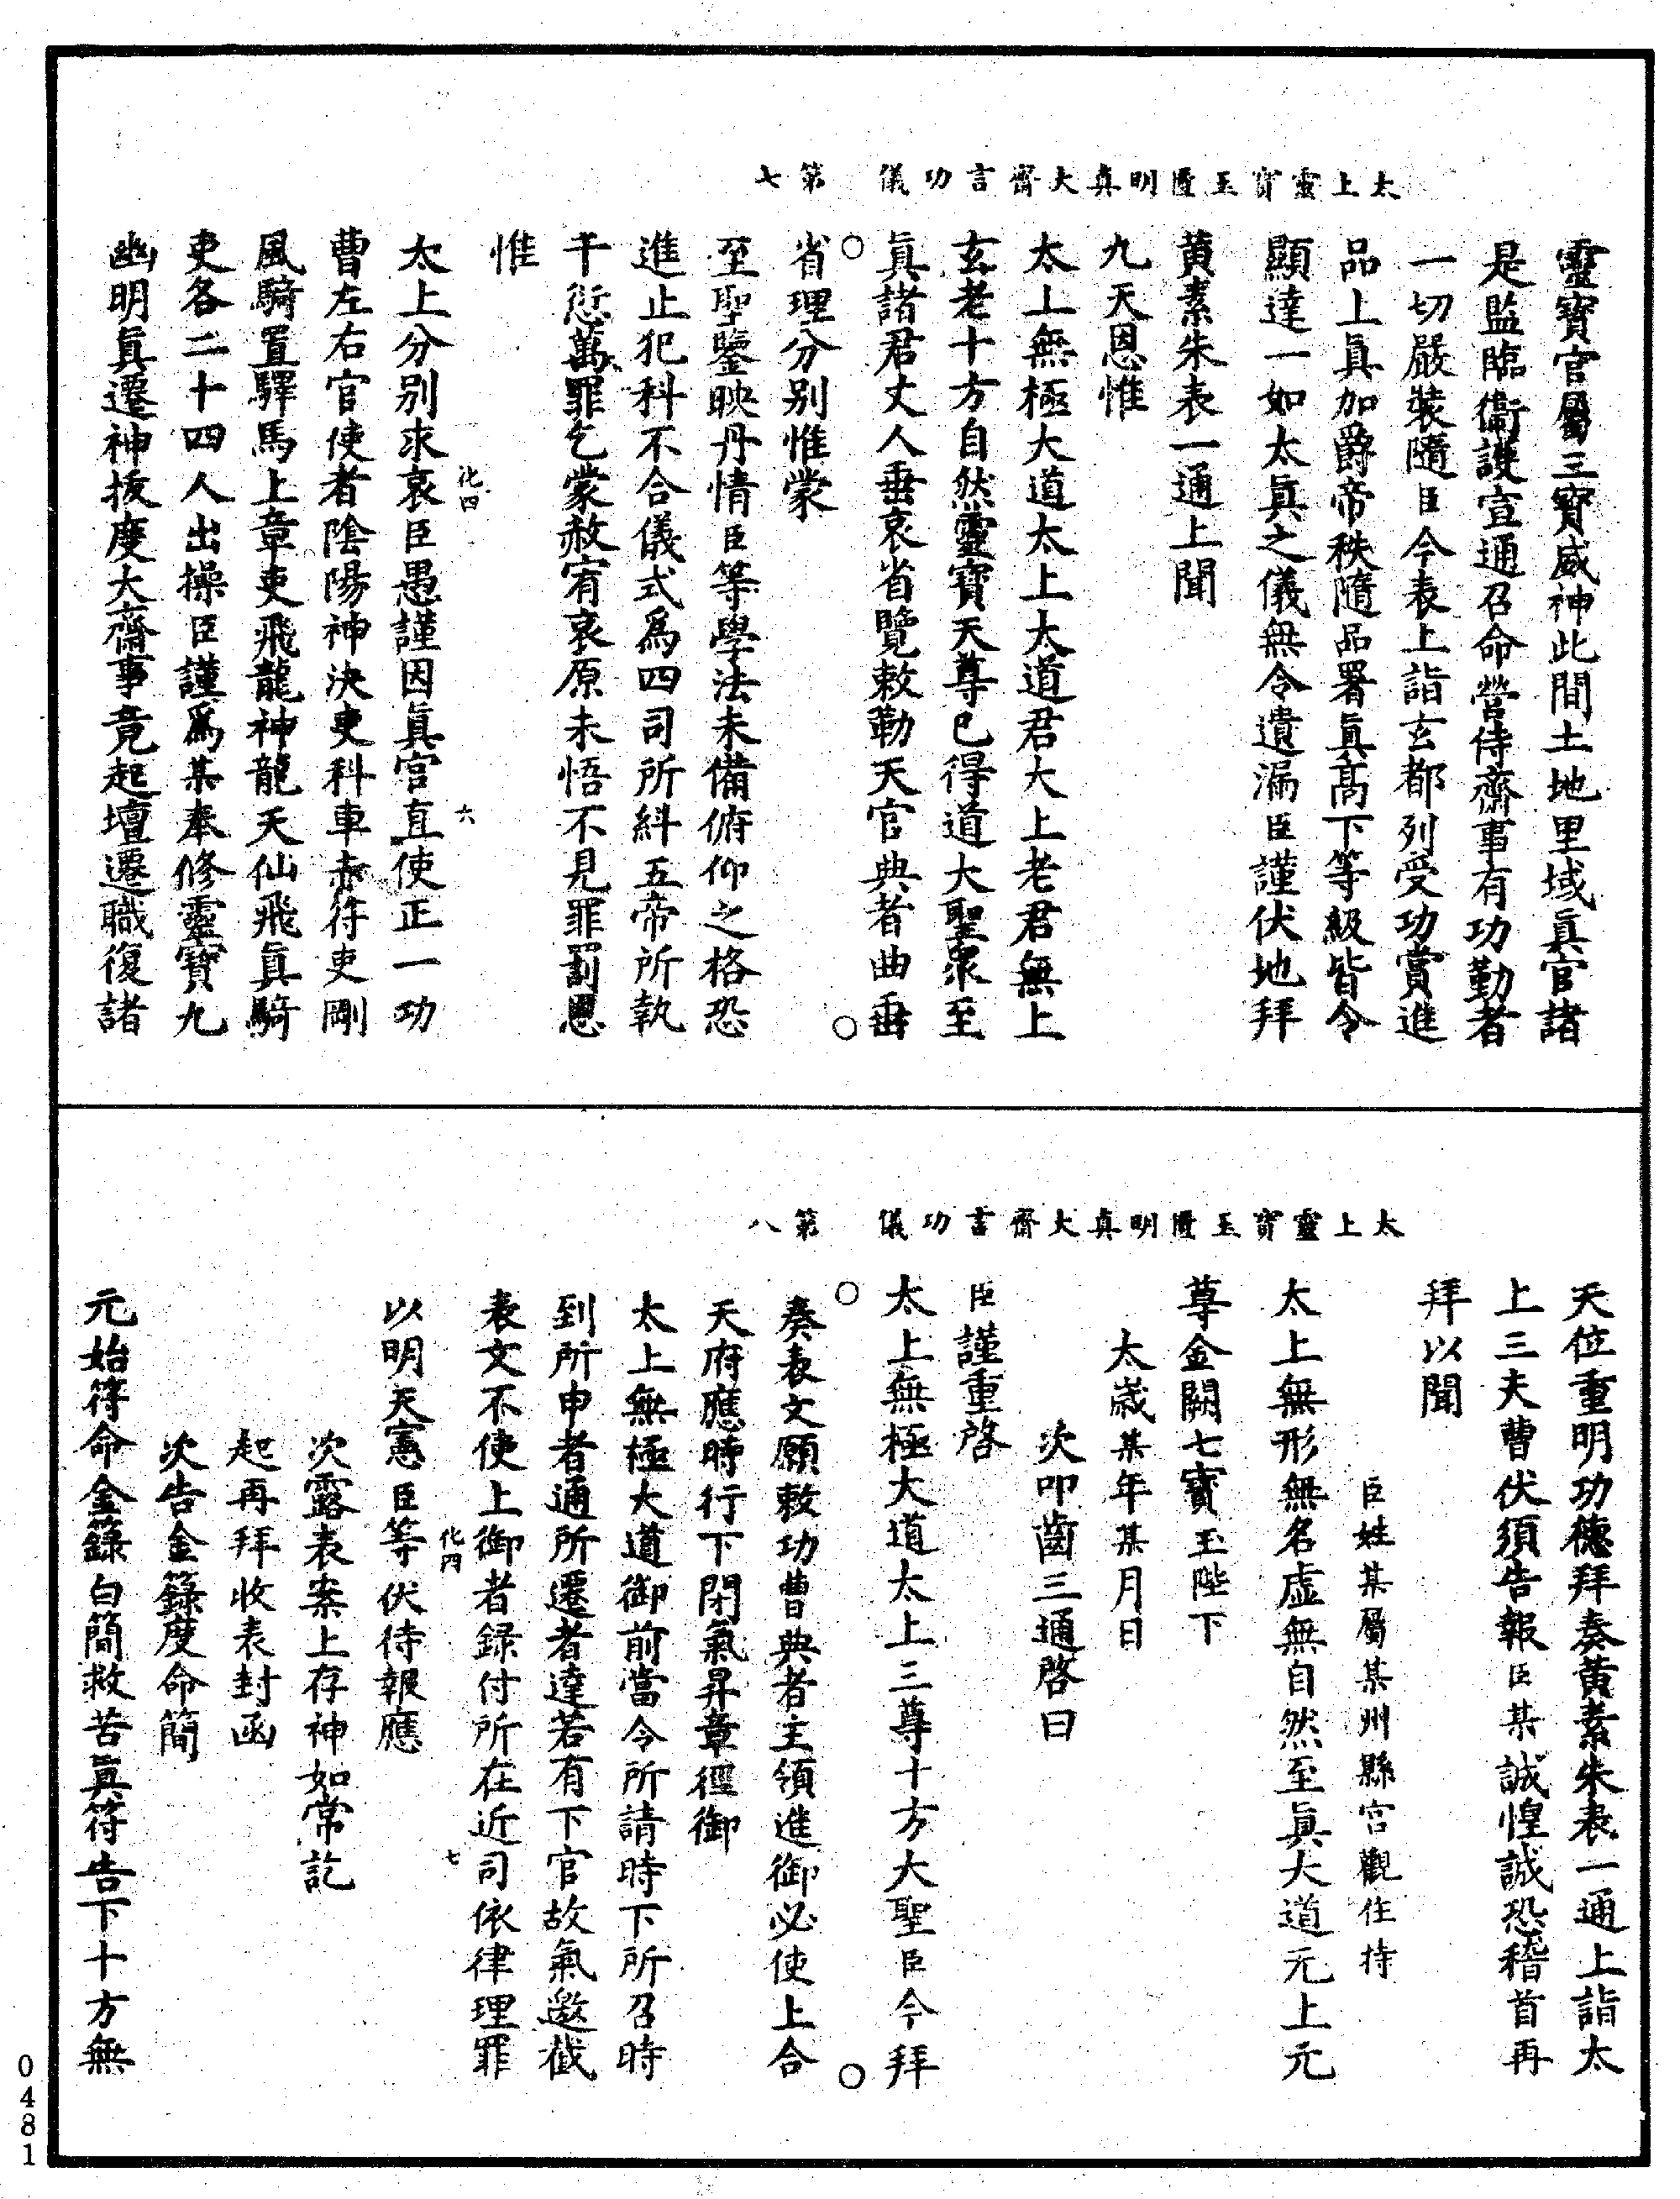 太上靈寶玉匱明真大齋言功儀　第七
靈寶官屬三寶威神此間土地里域真官諸
是監臨衞護宣通召命營侍齋事有功勤者
一切嚴裝隨臣今表上詣玄都列受功賞進
品上真加爵帝秩隨品署真高下等級皆令
顯達一如太真之儀無令遺漏臣謹伏地拜
黄素朱表一通上聞
九天恩惟
太上無極大道太上大道君大上老君無上
玄老十方自然靈寶天尊巳得道大聖眾至
真諸君丈人垂哀省覽敕勒天官典者曲垂
省理分别惟蒙
至聖鑒映丹情臣等學法未備俯仰之格恐
進止犯科不合儀式爲四司所糾五帝所執
干愆萬罪乞蒙赦宥哀原未悟不見罪罰恩
惟
太上分别求哀臣愚謹因真官直使正一功
化四　六
曹左右官使者陰陽神決吏科車赤符吏剛
風騎置驛馬上章吏飛龍神龍天仙飛真騎
吏各二十四人出操臣謹爲某奉修靈寶九
幽明真遷神拔度大齋事竟起壇遷職復諸
太上靈寶玉匱明真大齋言功儀　第八
天位重明功德拜奏黄素朱表一通上詣太
上三天曹伏須告報臣某誠惶誠恐稽首再
拜以聞
臣姓某屬某州縣宫觀住持
太上無形無名虚無自然至真大道元上元
尊金闕七寶玉陛下
太歲某年某月日
次叩齒三通啓曰
臣謹重啓
太上無極大道太上三尊十方大聖臣今拜
奏表文願敕功曹典者主領進御必使上合
天府應時行下閉氣昇章徑御
太上無極大道御前當令所請時下所召時
到所申者通所遷者達若有下官故氣邀截
表文不使上御者録付所在近司依律理罪
化四　七
以明天憲臣等伏待報應
次露表案上存神如常訖
起再拜收表封函
次告金籙度命簡
元始符命金籙白簡救苦真符告下十方無
0481